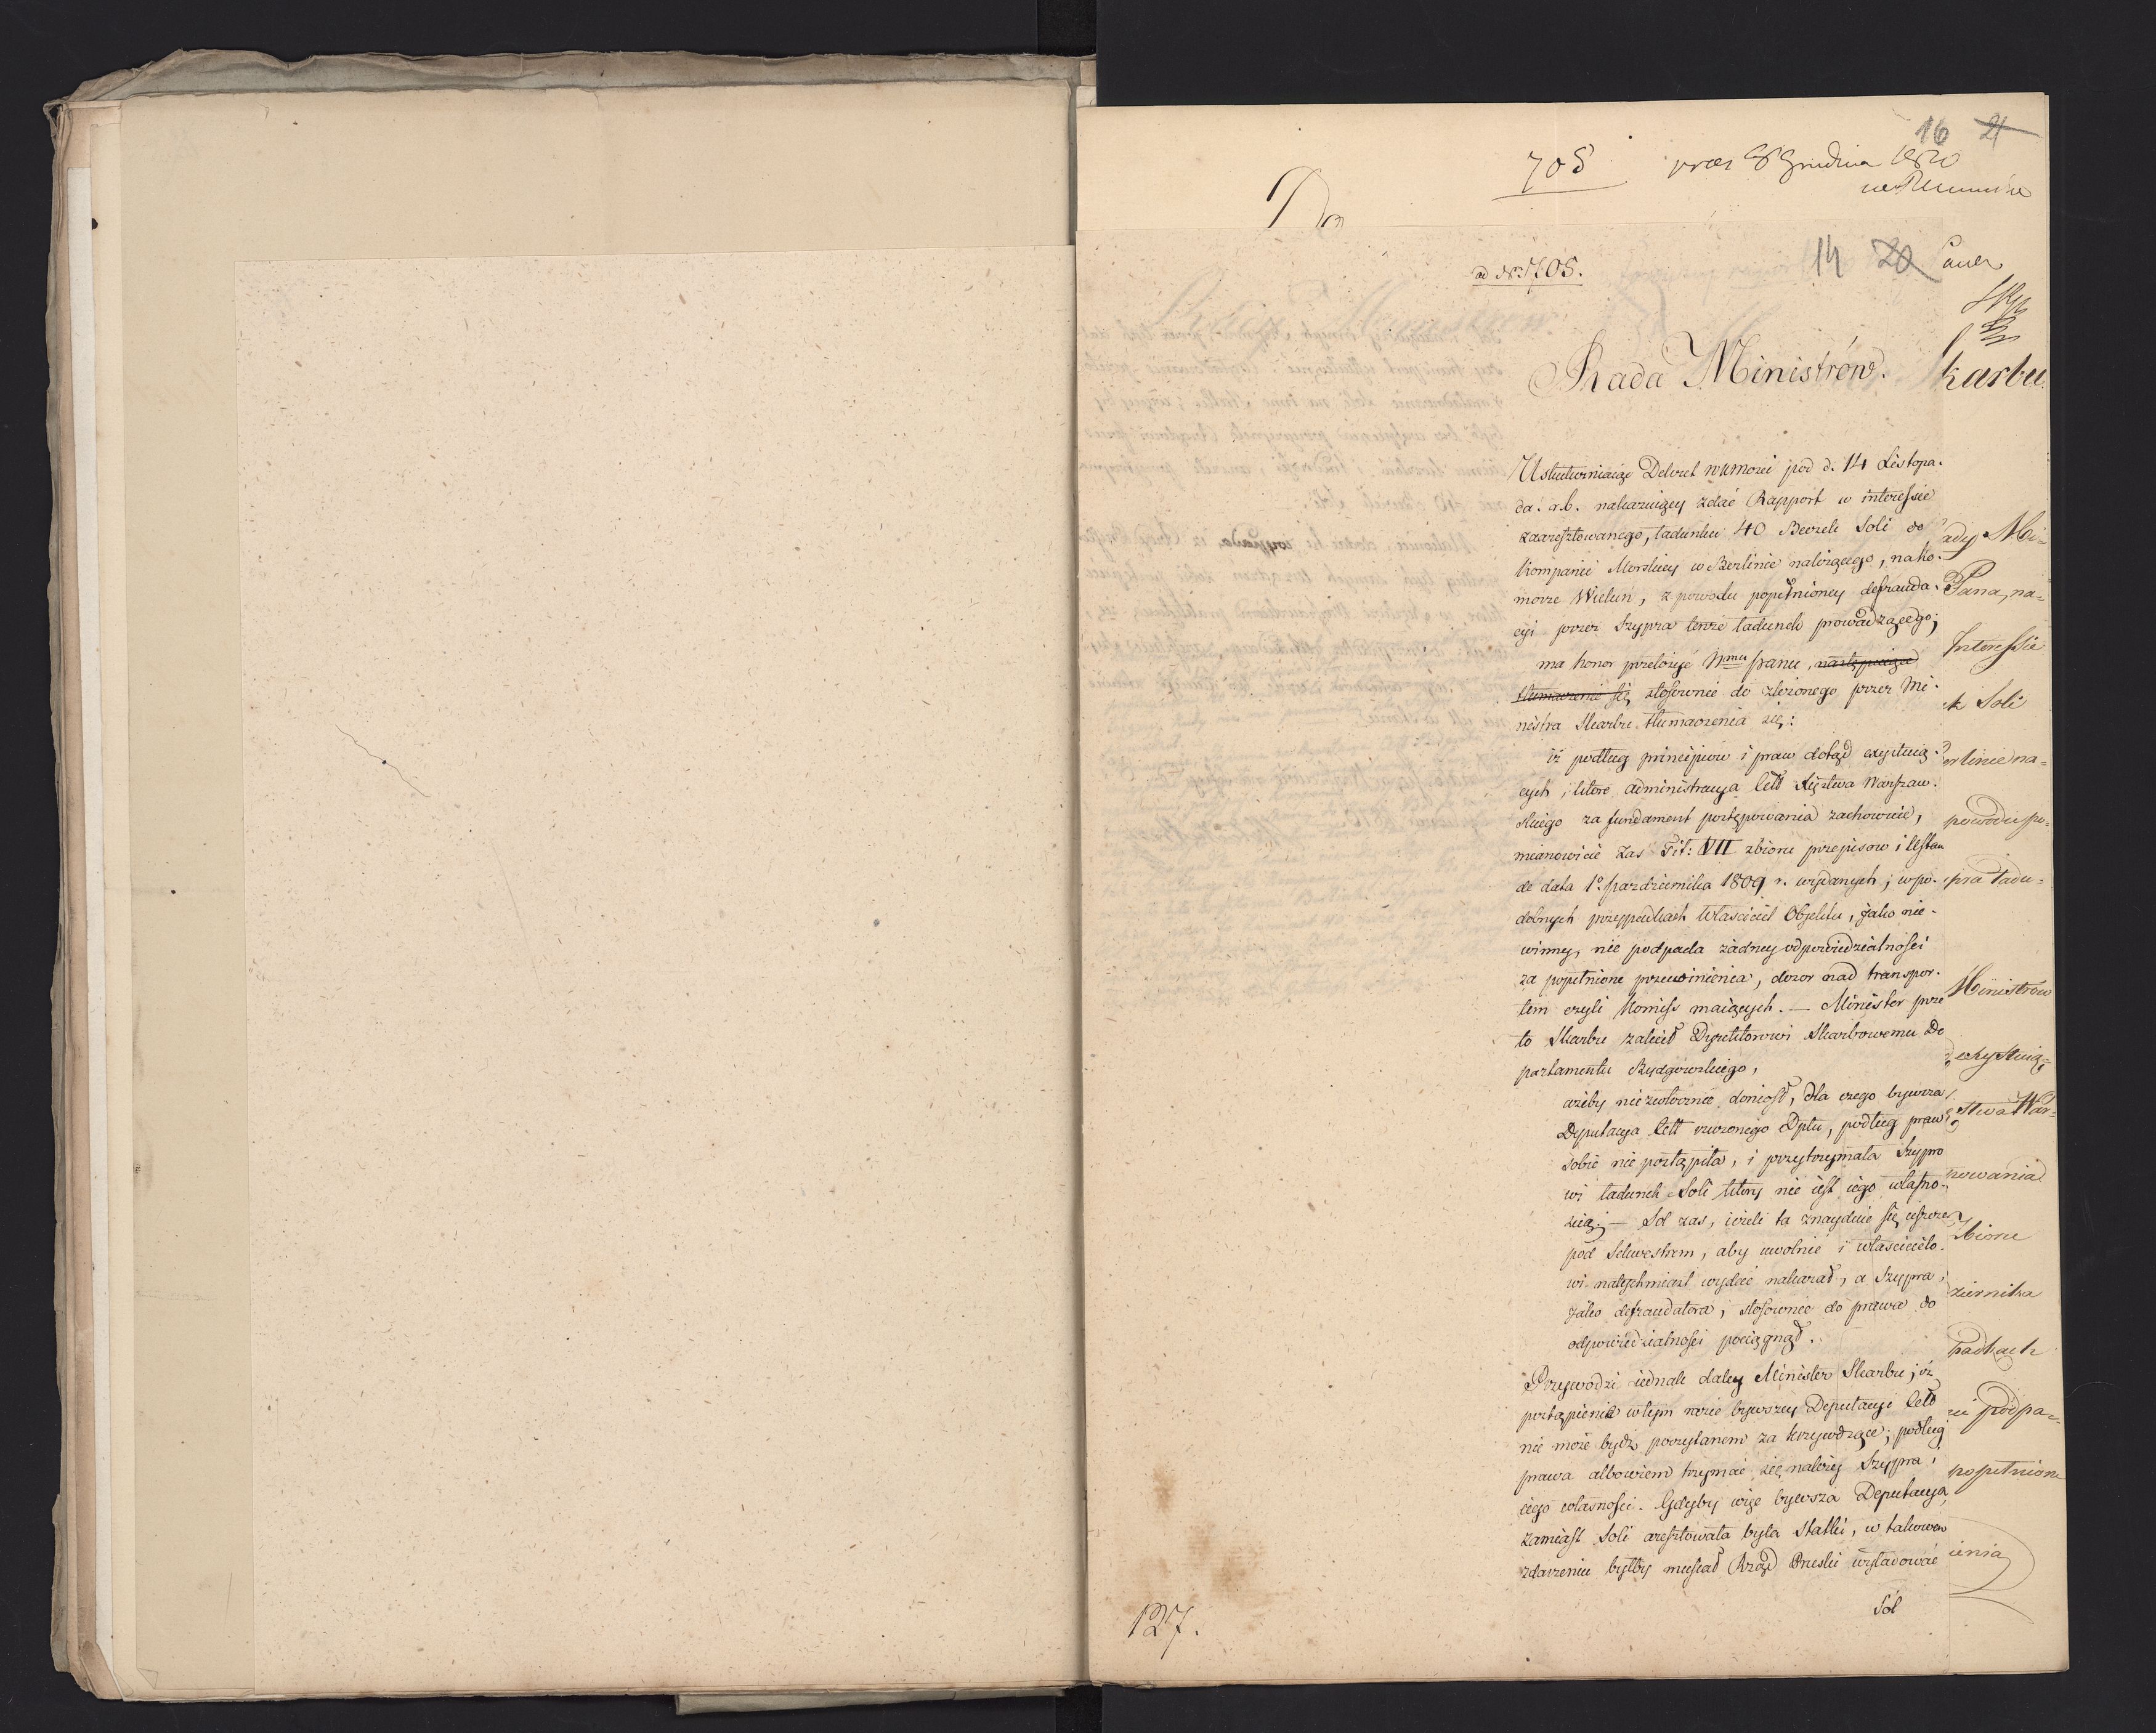 16 21
705
8 Grudnia 1810
Do
ad Nr 705.
14 20
Rada Ministrów.
karbu
Uskuteczniaiąc Dekret WKMości pod d. 14 Listopa-
da r.b. nakazuiący zdać Rapport w interessie
zaaresztowanego, ładunku 40 Beczek Soli do
Kompanii Morskiey w Berlinie należącego, na Ko-
morze Wieluń, z powodu popełnioney defrauda-
cyi przez Szypra tenże ładunek prowadzącego;
ma honor przełożyć Nmu Panu, następuiące
tłumaczenie się stosownie do złożonego przez Mi-
nistra Skarbu tłumaczenia się:
iż podług principiow i praw dotąd exystuią-
cych, ktore administracya Cełł Xięztwa Warszaw-
skiego za fundament postępowania zachowuie,
mianowicie zas Tit: VII zbioru przepisow i Ustaw
de data 1o Pazdziernika 1809 r. wydanych; w po-
dobnych przypadkach Właściciel Objektu, jako nie-
winny, nie podpada żadney odpowiedzialności
za popełnione przewinienia, dozor nad transpor-
tem czyli Komiss maiących. — Minister prze
to Skarbu zalecił Dyrektorowi Skarbowemu De
partamentu Bydgoskiego,
ażeby niezwłocznie doniosł, dla czego bywsza
Deputacya Cełł rzeczonego Dptu, podług praw
sobie nie postąpiła, i przytrzymała Szypro
wi ładunek Soli ktory nie iest iego własno-
ścią; — Sol zas, ieżeli ta znayduie się ieszcze
pod Sekwestrem, aby uwolnić i właścicielo-
wi natychmiast wydać nakazał, a Szypra,
jako defraudatora, stosownie do prawa do
odpowiedzialności pociągnął.
Przywodzi iednak daley Minister Skarbu; iż
postąpienie w tym razie bywszey Deputacyi Cełł
nie może bydź poczytanem za krzywdzące; podług
prawa albowiem trzymać się należy Szypra i
iego własności. Gdyby więc bywsza Deputacya
zamiast Soli aresztowała była Statki, w takowem
zdarzeniu byłby musiał Rząd Pruski wyładować
Sól
ady Mi-
Pana, na-
Interessie
k Soli
erlinie na-
powodu po-
pra ładu-
Ministrów
exystuią-
stwa War-
powania
Zbioru
ziernika
padkach
podpa-
popełnione
ienia
127.